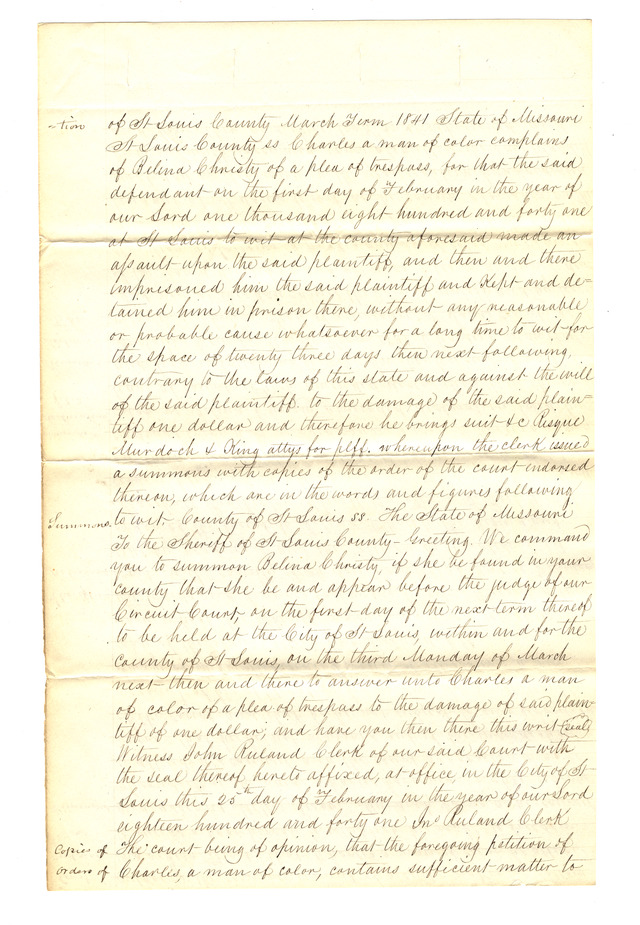 -tion of St Louis County March Term 1841 State of Missouri
St Louis County ss Charles a man of color complains
of Belina Christy of a plea of trespass, for that the said
defendant on the first day of February in the year of
our Lord one thousand eight hundred and forty one
at St Louis to wit at the county aforesaid made an
assault upon the said plaintiff, and then and there
imprisoned him the said plaintiff and Kept and de-
tained him in prison there, without any reasonable
or probable cause whatsoever for a long time to wit for
the space of twenty three days then next following,
contrary to the laws of this state and against the will
of the said plaintiff. to the damage of the said plain-
tiff one dollar and therefore he brings suit &c Risque
Murdoch & King attys for plff. whereupon the clerk issued
a summons with copies of the order of the court endorsed
thereon, which are in the words and figures following
Summons. to wit. County of St Louis ss. The State of Missouri
To the Sheriff of St Louis County - Greeting. We command
you to summon Belina Christy, if she be found in your
county that she be and appear before the judge of our
Circuit Court, on the first day of the next term thereof
to be held at the City of St Louis, within and for the
county of St Louis, on the third Monday of March
next then and there to answer unto Charles a man
of color of a plea of trespass to the damage of said plain-
tiff of one dollar; and have you then there this writ (seal)
Witness John Ruland Clerk of our said Court with
the seal thereof hereto affixed, at office in the City of St
Louis this 25th day of February in the year of our Lord
eighteen hundred and forty one Jno Ruland Clerk
Copies of The court being of opinion, that the foregoing petition of
orders of Charles, a man of color, contains sufficient matter to